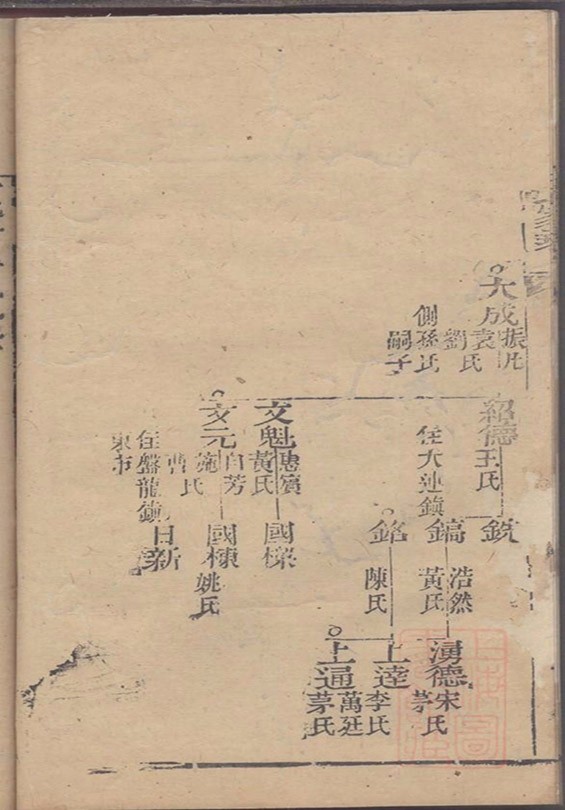 大成 振九
袁氏
劉氏
側孫氏
嗣子
紹德 王氏
住大蓮鎮
文魁 惠賓
黃氏
文元 自芳
施氏
曹氏
住盤龍鎮
東市
銑
鎬 浩然
黃氏
銘 陳氏
國樑
國棟 姚氏
日新
湧德 宋氏
茅
上達 李氏
上通 萬廷
茅氏